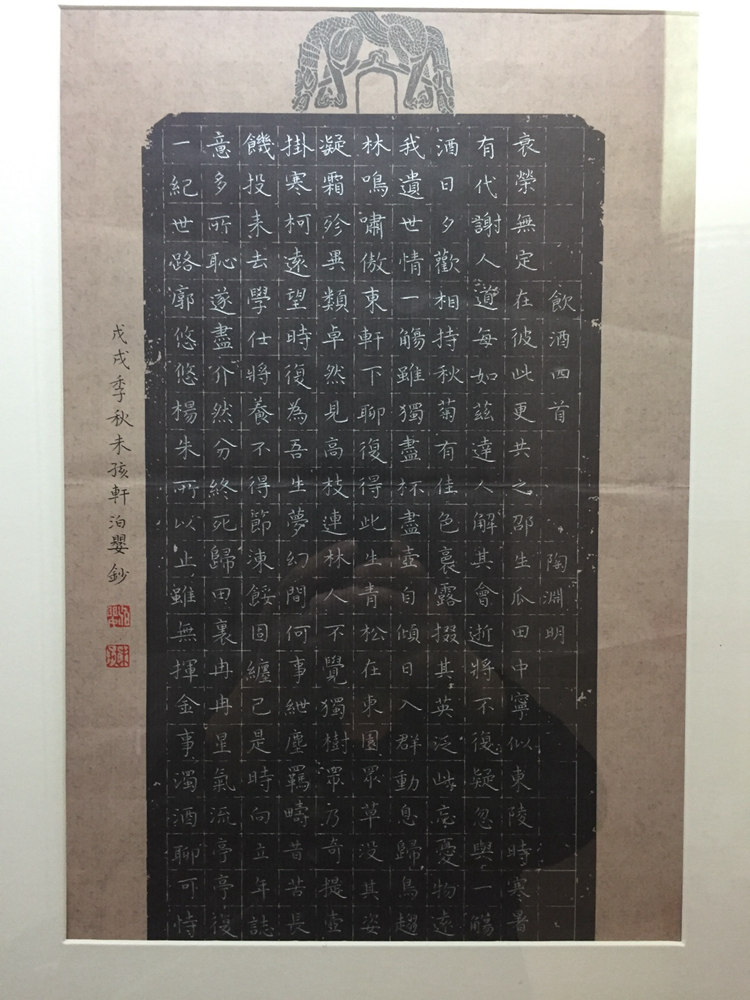 飲酒四首 陶淵明
衰榮無定在彼此更共之邵生瓜田中寧似東陵時寒暑
有代謝人道每如茲達人解其會逝將不復疑忽與一觴
酒日夕歡相持秋菊有佳色裛露掇其英泛此忘憂物遠
我遺世情一觴雖獨盡杯盡壺自傾日入群動息歸鳥趨
林鳴嘯傲東軒下聊復得此生青松在東園眾草没其姿
凝霜殄異類卓然見高枝連林人不覺獨樹眾乃奇提壺
掛寒柯遠望時復為吾生夢幻間何事紲塵羈疇昔苦長
饑投耒去學仕將養不得節凍餒固纏己是時向立年誌
意多所恥遂盡介然分終死歸田裏冉冉星氣流亭亭復
一紀世路廓悠悠楊朱所以止雖無揮金事濁酒聊可恃
戊戌季秋未孩軒泊嬰鈔